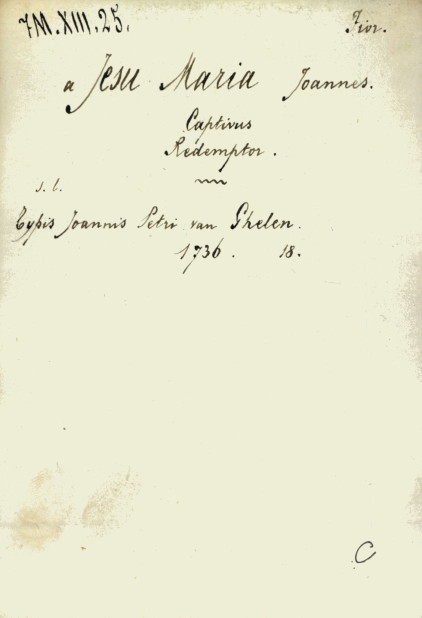 7M.XIII.25. Fior.
a Jesu Maria Joannes.
Captivus
Redemptor.
s. l.
Typis Joannis Petri van Ghelen.
1736. 18.
C